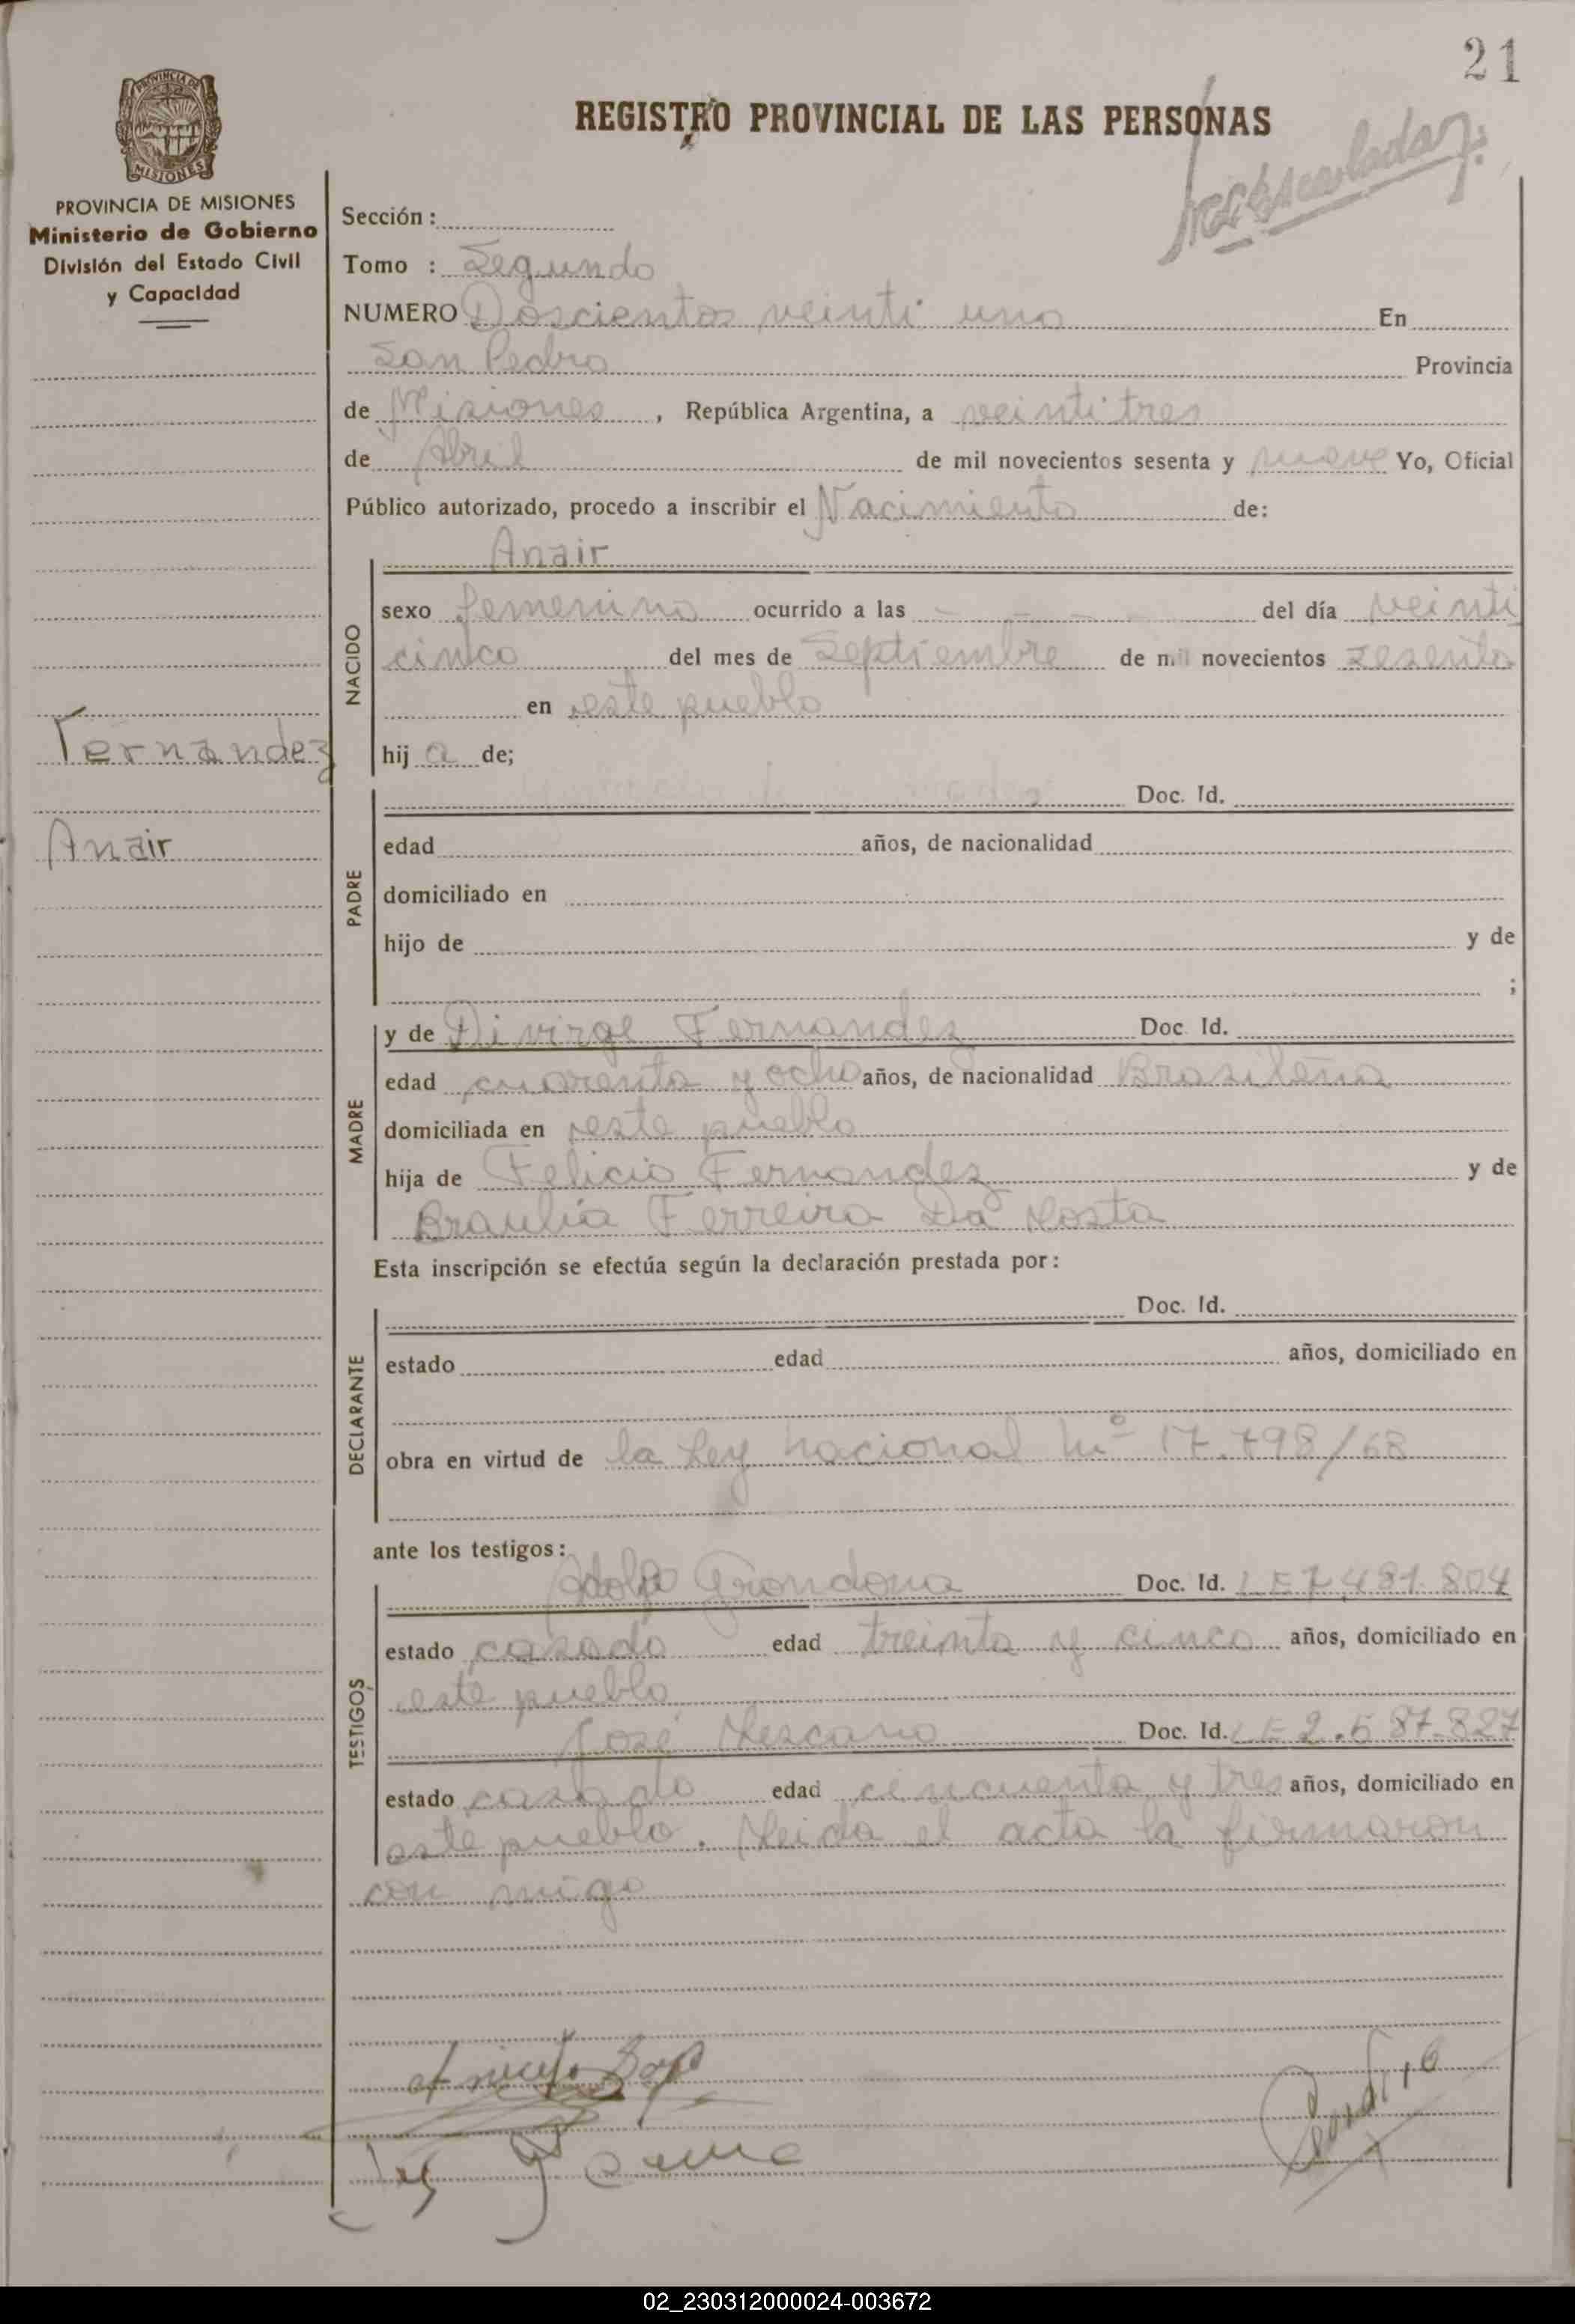 21
REGISTRO PROVINCIAL DE LAS PERSONAS
PROVINCIA DE MISIONES
MISIONES
PROVINCIA DE MISIONES
Ministerio de Gobierno
División del Estado Civil
y Capacidad
Sección :
Tomo : Segundo
NUMERO Doscientos veinti uno En
San Pedro Provincia
de Misiones, República Argentina, a veintitres
de Abril de mil novecientos sesenta y nueve Yo, Oficial
Público autorizado, procedo a inscribir el Nacimiento de:
Anair
NACIDO
sexo femenino ocurrido a las - - - del día veinti
cinco del mes de Septiembre de mil novecientos sesenta
en este pueblo
hij a de;
Fernandez
Anair
PADRE
Doc. Id.
edad años, de nacionalidad
domiciliado en
hijo de y de
;
MADRE
y de Divirge Fernandez Doc. Id.
edad cuarenta y ocho años, de nacionalidad Brasileña
domiciliada en este pueblo
hija de Felicio Fernandez y de
Braulia Ferreira Da Costa
Esta inscripción se efectúa según la declaración prestada por:
DECLARANTE
Doc. Id.
estado edad años, domiciliado en
obra en virtud de la Ley nacional nº 17.798/68
ante los testigos:
TESTIGOS
Adolfo Grondona Doc. Id. LE 7,481.804
estado casado edad treinta y cinco años, domiciliado en
este pueblo
José Lescano Doc. Id. LE 2.587.827
estado casado edad cincuenta y tres años, domiciliado en
este pueblo. Leida el acta la firmaron
con migo
02_230312000024-003672